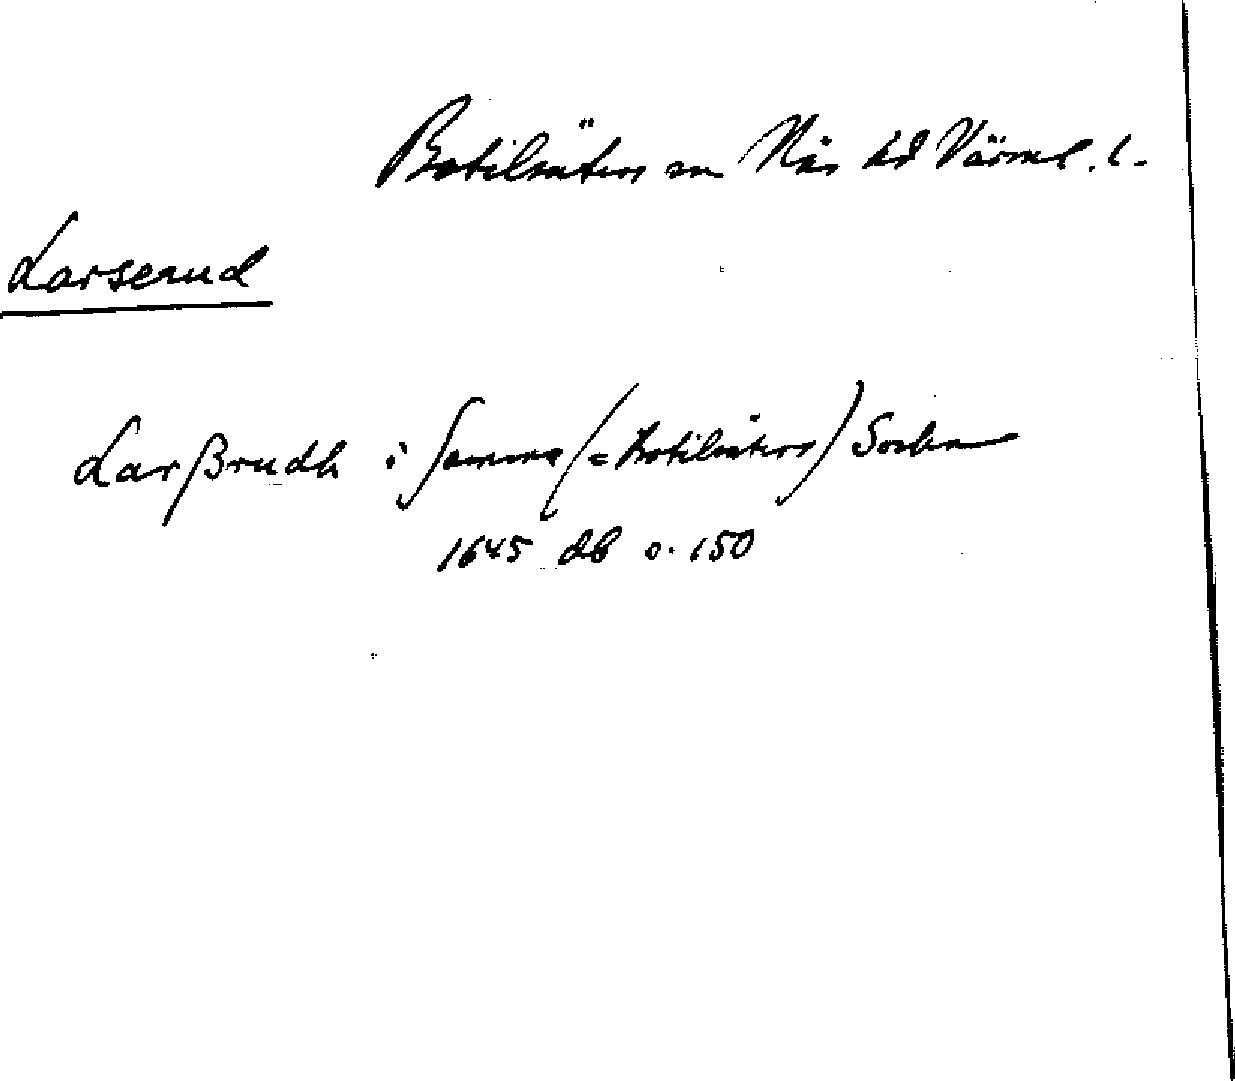 Botilsäters sn Näs hd Värml. l.
Larserud
Larßrudh i Samma (= Botilsäters) Sochn
1645 db s. 150